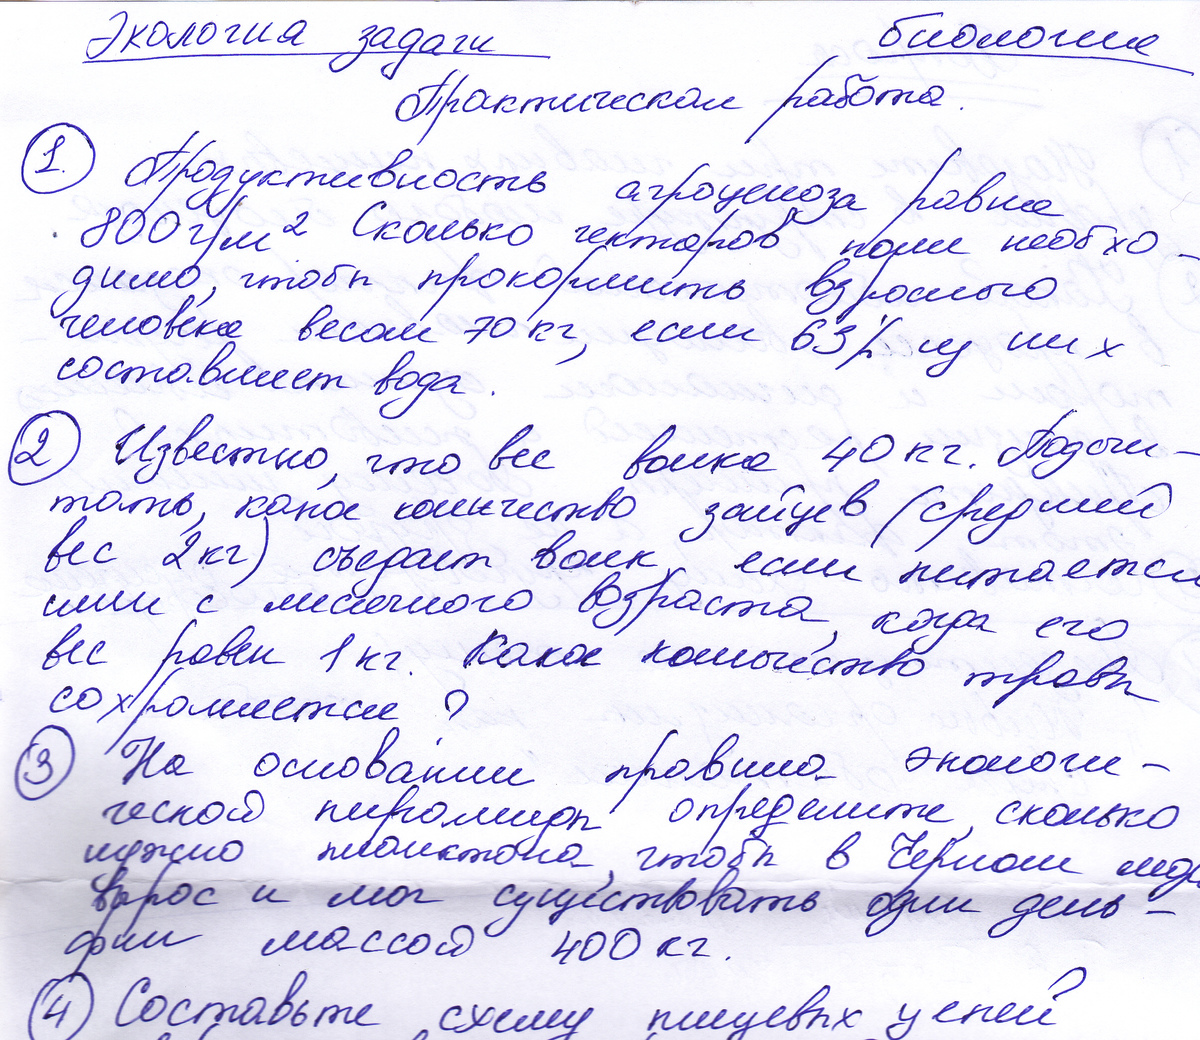 Экология задачи биология
Практическая работа.
1. Продуктивность агроценоза равна
800 г/м² Сколько гектаров поля необхо-
димо, чтобы прокормить взрослого
человека весом 70 кг, если 63% из них
составляет вода.
2 Известно, что вес волка 40 кг. Подсчи-
тать, какое количество зайцев (средний
вес 2 кг) съедает волк, если питается
ими с месячного возраста, когда его
вес равен 1 кг. Какое количество травы
сохраняется?
3 На основании правила экологи-
ческой пирамиды определите, сколько
нужно планктона, чтобы в Черном море
вырос и мог существовать один дель-
фин массой 400 кг.
4 Составьте схему пищевых цепей